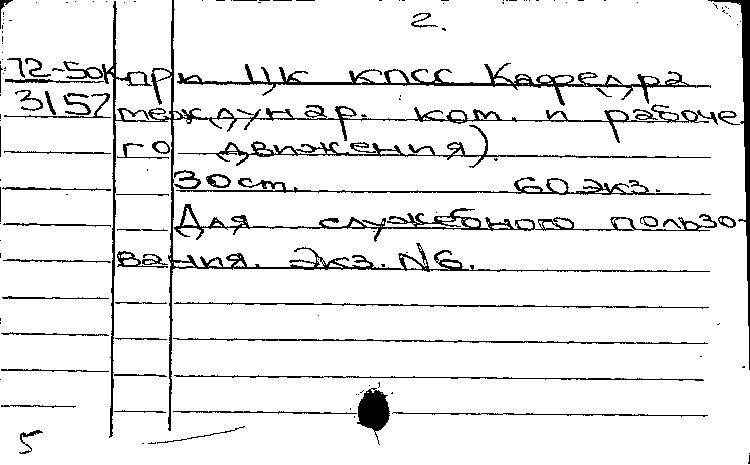 2.
72-50к при ЦК КПСС Кафедра
3157 междунар. ком. и рабоче-
го движения).
30 ст. 60 экз.
Для служебного пользо-
вания. Экз. №6.
5